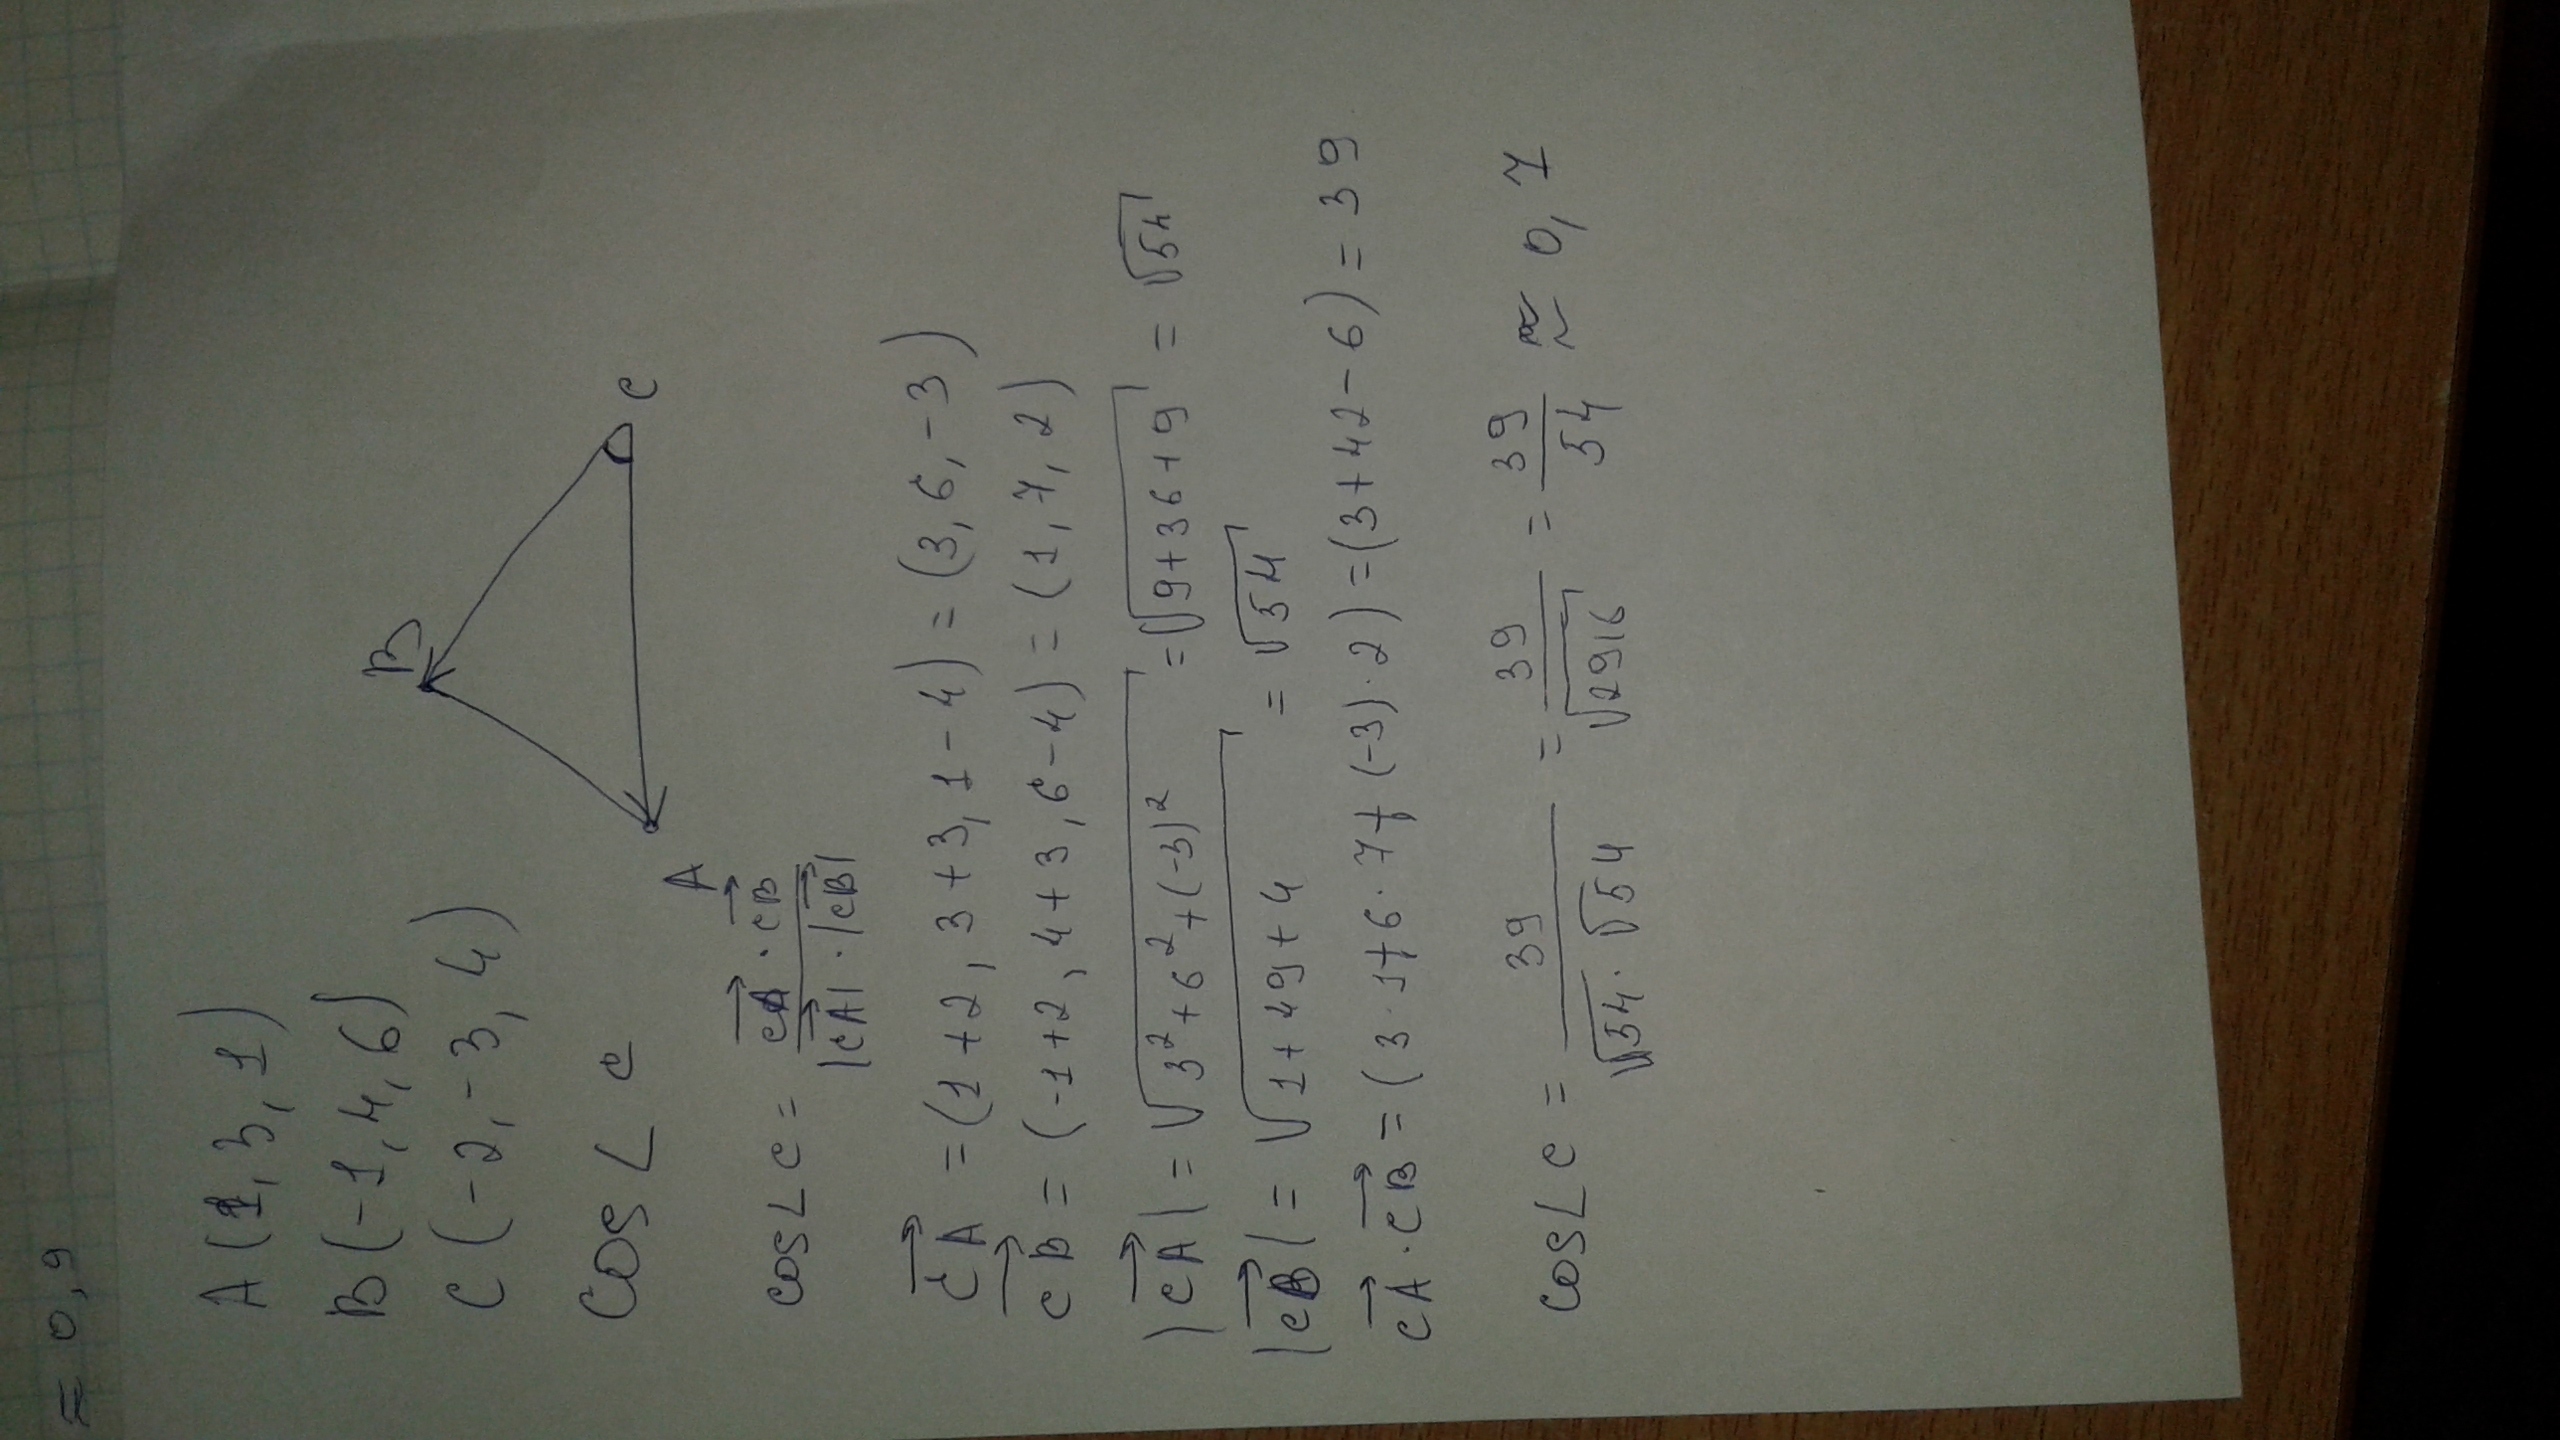 ≈ 0,9
A(1, 3, 1)
B(-1, 4, 6)
C(-2, -3, 4)
cos∠c
B
C
A
cos∠c = CA · CB / |CA| · |CB|
CA = (1+2, 3+3, 1-4) = (3, 6, -3)
CB = (-1+2, 4+3, 6-4) = (1, 7, 2)
|CA| = √3²+6²+(-3)² = √9+36+9 = √54
|CB| = √1+49+4 = √54
CA · CB = (3·1+6·7+(-3)·2) = (3+42-6) = 39
cos∠c = 39 / √54 · √54 = 39 / √2916 = 39 / 54 ≈ 0,7